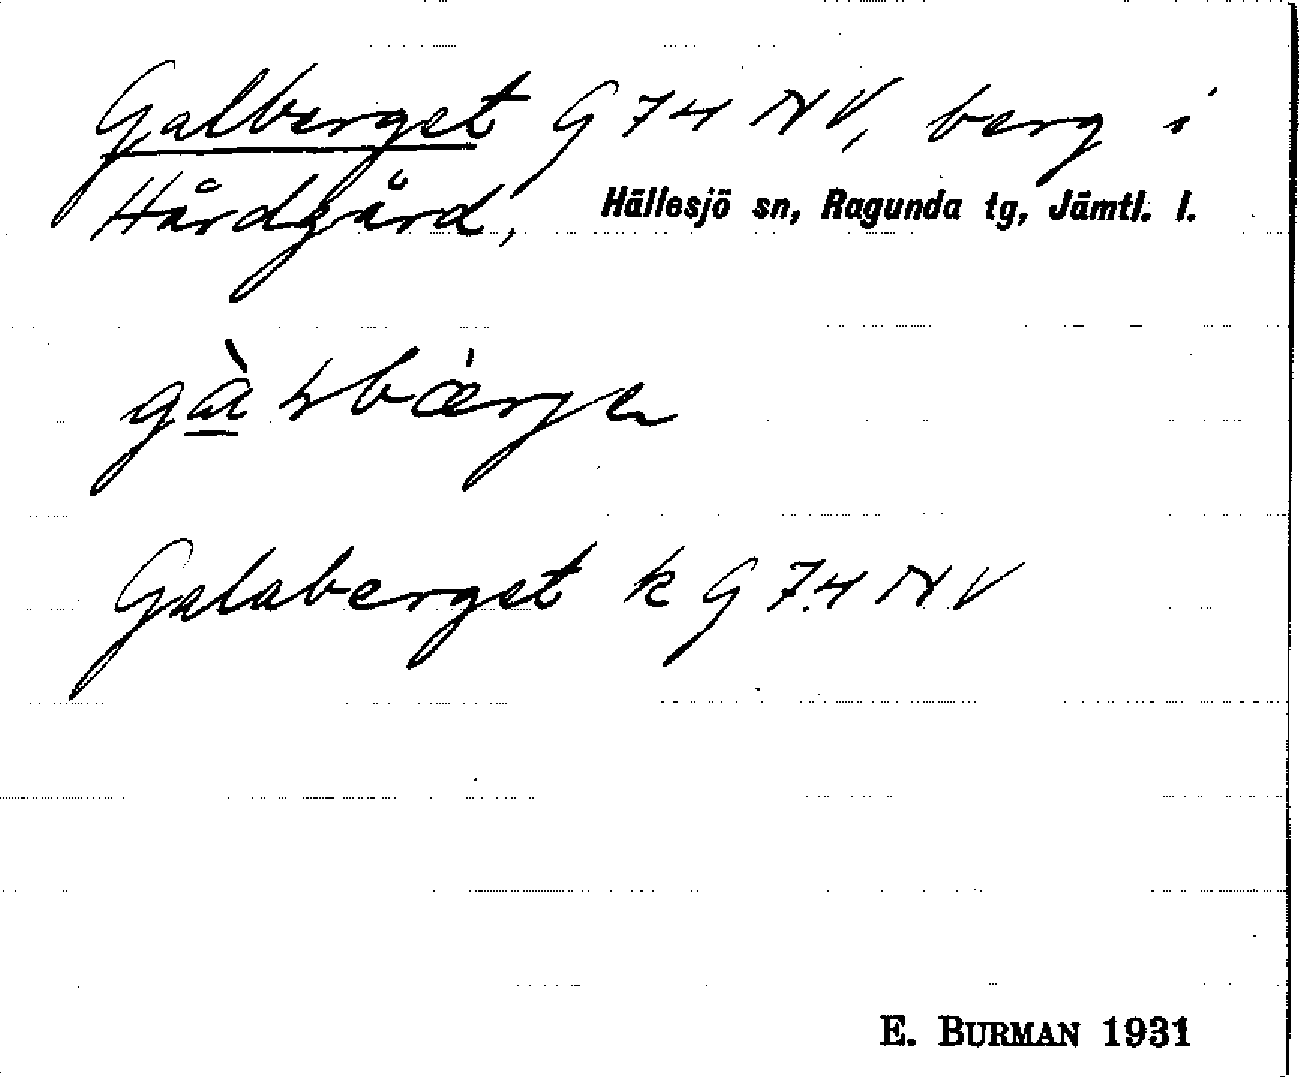 Galberget G 74 NV, berg i
Hårdgård, Hällesjö sn, Ragunda tg, Jämtl. l.
Galaberget k G 74 NV
E. BURMAN 1931